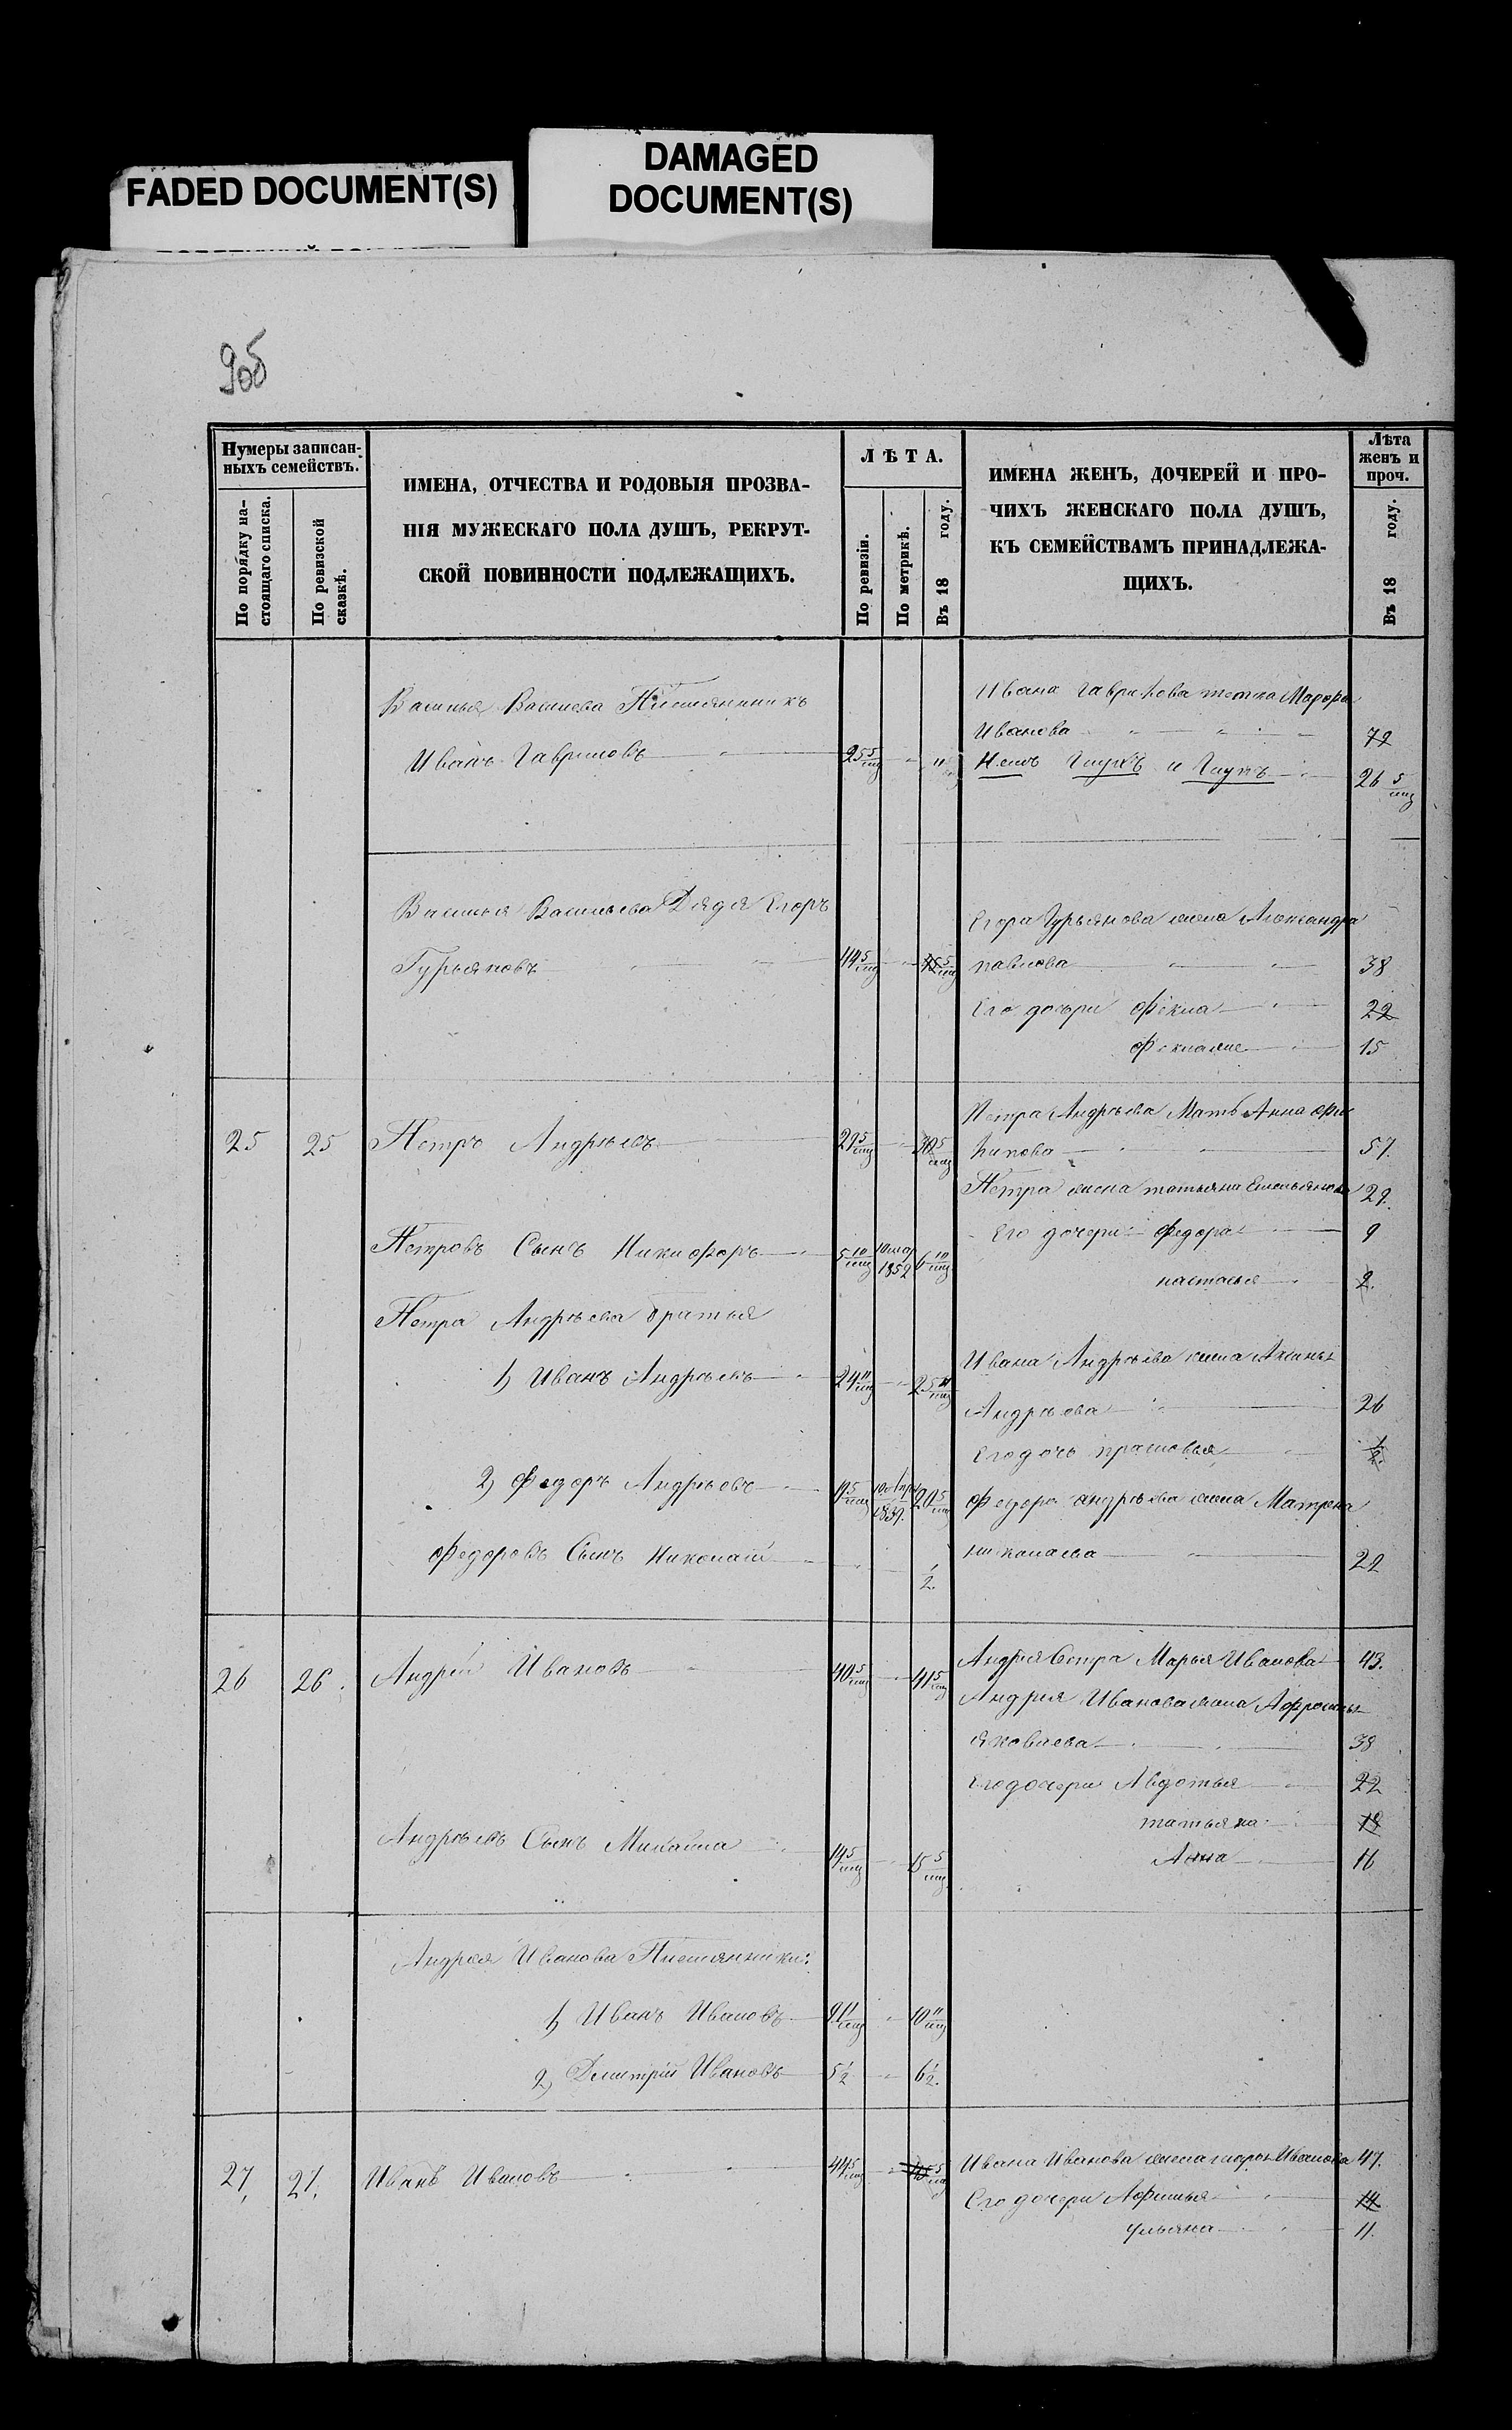 FADED DOCUMENT(S)
DAMAGED
DOCUMENT(S)
905
Нумеры записан-
ныхъ семействъ.
По порядку на-
стоящаго списка.
По ревизской
сказкѣ.
ИМЕНА, ОТЧЕСТВА И РОДОВЫЯ ПРОЗВА-
НІЯ МУЖЕСКАГО ПОЛА ДУШЪ, РЕКРУТ-
СКОЙ ПОВИННОСТИ ПОДЛЕЖАЩИХЪ.
ЛѢТА.
По ревизіи.
По метрикѣ.
Въ 18 году.
ИМЕНА ЖЕНЪ, ДОЧЕРЕЙ И ПРО-
ЧИХЪ ЖЕНСКАГО ПОЛА ДУШЪ,
КЪ СЕМЕЙСТВАМЪ ПРИНАДЛЕЖА-
ЩИХЪ.
Лѣта
женъ и
проч.
Въ 18 году.
Племянникъ
Иванъ Гавриловъ 25 5/мц
Ивана Гаврилова тетка
Иванова 72
26 5/мц
Василья Васильева Дядя Егоръ
Гурьяновъ 44 5/мц 45 5/мц
Егора Гурьянова жена Александра
павлова 38
Его дочери Фекла 22
15
25 25 Петръ Андрѣевъ 29 5/мц 30 5/мц
Петра Андрѣева Мать Анна Фи
липова 57.
Петра жена татьяна Емельянова 29.
Петровъ Сынъ Никифоръ 5 10/мц 1852 6 10/мц
Его дочери федора 9
настасья 2.
Петра Андрѣева братья
1) Иванъ Андрѣевъ 24 11/мц 25 11/мц
Ивана Андрѣева жена
Андрѣева 26
Его дочь прасковья 1/2.
2) Федоръ Андрѣевъ 19 5/мц 1839. 20 5/мц
Федора андрѣева жена Матрена
николаева 22
Федоровъ Сынъ Николай 1/2.
26 26. Андрей Ивановъ 40 5/мц 41 5/мц
Андрея Сестра Марья Иванова 43.
Андрея Иванова жена
яковлева 38
Его дочери Авдотья 22
татьяна 18
Анна 16
Андрѣевъ Сынъ Михайла 14 5/мц 15 5/мц
Андрея Иванова Племянники:
1) Иванъ Ивановъ 9 11/мц 10 11/мц
2) Дмитрій Ивановъ 5 1/2 6 1/2.
27. 27. Иванъ Ивановъ 44 5/мц 45 5/мц
Ивана Иванова жена Иванова 47.
Его дочери Афимья 14
ульяна 11.